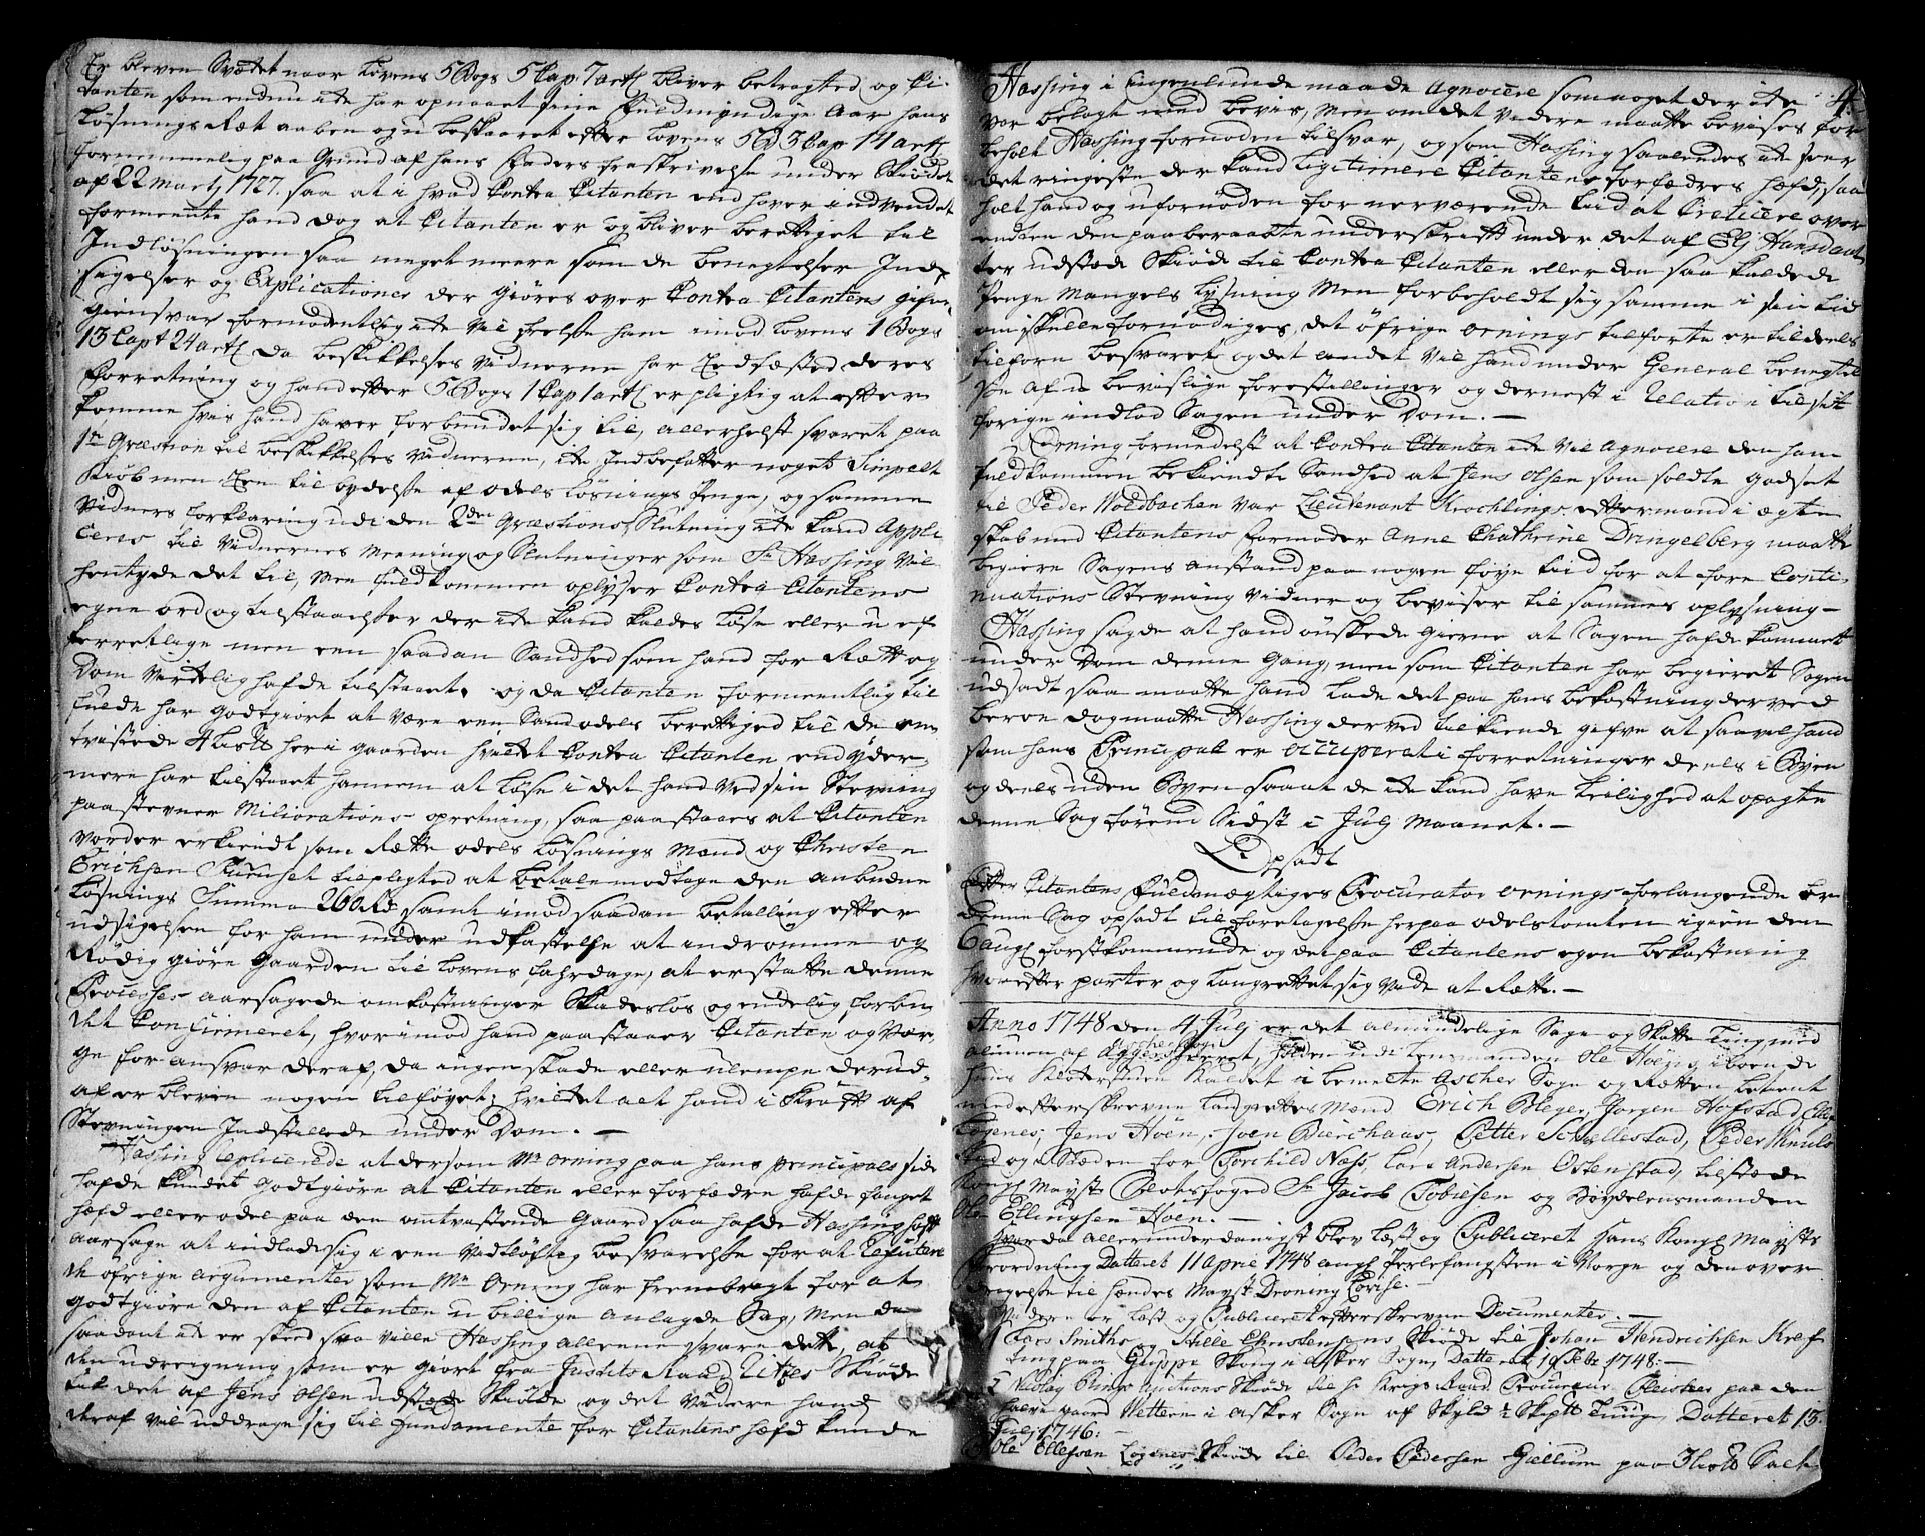 Er bleven Svækket naar Lovens 5 Bogs 5 Cap: 7 art: bliver betragted og Ci-
tanten som endnu icke har opnaaet sine Fuldmyndige Aar hans
Løsnings Ræt aaben og u beskaaret efter Lovens 5 B 3 Cap 14 art:
fornemmelig paa Grund af hans Faders fraskrivelse under Skiødet
af 22 Marti 1727. saa at i hvad Contra Citanten end haver indvendet
formeente hand dog at Citanten er og bliver berettiget til
Indløsningen saa meget meere som de benegtelser Ind-
sigelser og Explicationer der giøres over Contra Citantens gifne
giensvar formodentlig icke vil frelse ham imod Lovens 1 Bogs
13 Capt 24 art: da beskikkelses vidnerne har Eedfæsted deres
forretning og hand efter 5 Bogs 1 Cap 1 art: er pligtig at efter
komme hvis hand haver forbundet sig til, allerhelst svaret paa
1te Qvæstion til beskikkelses vidnerne, icke Indbefatter noget Simpelt
Kiøb men Een til ydelse af odels Løsnings Penge, og samme
vidners forklaring udi den 2den Qvæstions Slutning icke kand appli
ceres til vidnernes meening og Slutninger som Sr Hassing vil
hentyde det til, men fuldkommen oplyser Contra Citantens
egne ord og tilstaaelser der icke kand kaldes løse eller u ef
terretlige men een saadan Sandhed som hand for Rætt og
Dom virkelig hafde tilstaaet. og da Citanten formeentlig til
fulde har godtgiort at være een Sand odels berettiged til de om
tvistede 4 Lis℔ her i gaarden hvilket Contra Citanten end yder-
mere har tilstaaet hannem at løse i det hand ved sin Stevning
paastevner Miliorations opretning, saa paastaaes at Citanten
vorder erkiendt som Rætte odels Løsnings Mænd og Christen
Erichsen Furuset tilpligted at betale modtage den anbudne
Løsnings Summa 260 Rd samt imod saadan betalling efter
udsigelsen for ham under udkastelse at indrømme og
Rødig giøre Gaarden til Lovens fahredage, at erstatte denne
Processes aarsagede omkostninger Skadesløs og endelig forbu
det Confirmeret, hvorimod hand paastaaer Citanten og Vær-
ge for ansvar deraf, da ingen skade eller ulempe derud-
af er bleven nogen tilføyet; hvilket alt hand i Kraft af
Stevningen Indstillede under Dom. –
Hassing replicerede at dersom Mr Orning paa hans principals side
hafde kundet godtgiøre at Citanten eller forfædre hafde fanget
hæfd eller odel paa den omtvistende Gaard saa hafde Hassing haft
aarsage at indlade sig i een vidtløftig besvarelse for at refutere
de øfrige argumenter som Mr Orning har frembragt for at
godtgiøre den af Citanten u billige anlagde Sag, Men da
saadant icke er skeed saa ville Hassing alleene svare dette, at
den udreigning som er giort fra Justits Raad Utzes Skiøde
til det af Jens Olsen udstæde Skiøde og det videre hand
deraf vil uddrage sig til Fundamente for Citantens hæfd kunde
4.
Hassing i ingenlunde maade agnoscere som noget der icke
var belagt med bevis, Men om det videre maatte bevises for
beholt Hassing fornøden tilsvar, og som Hassing saaledes icke seer
det ringeste der kand legitimere Citantens forfædres hæfd, saa
holt hand og ufornøden for nerværende tid at Criticere over
endten den paaberaabte underskrift under det af Elj Hansdaat
ter udstæde Skiøde til Contra Citanten eller den saa kaldede
Penge Mangels Lysning Men forbeholdt sig samme i sin tid
om skulle fornødiges, det øfrige Ornings tilførte er tildeels
tilforn besvaret og det andet vil hand under General benegtel
se af u bevislige forestillinger og dernest i Relation til sit
forige indlod Sagen under Dom. –
Orning formedelst at Contra Citanten icke vil agnoscere den ham
fuldkommen bekiendte Sandhed at Jens Olsen som solte godset
til Peder Woldbachen var Lieutenant Krochlings eftermand i ægte
skab med Citantens formoder Anne Chathrine Dringelberg maatte
begiere Sagens anstand paa nogen føye tiid for at føre Conti-
nuations Stevning vidner og beviser til sammes oplysning –
Hassing sagde at hand ønskede gierne at Sagen hafde kommet
under Dom denne Gang, men som Citanten har begieret Sagen
udsadt saa maatte hand lade det paa hans bekostning derved
beroe dog maatte Hassing derved tilkiende gifve at saavel hand
som hans Principal er occuperet i forretninger deels i Byen
og deels uden Byen saa at de icke kand have leilighed at opagte
denne Sag førend Sidst i Julj Maanet. –
Opsadt
Efter Citantens Fuldmægtiges Procurator Ornings forlangende er
denne Sag opsadt til foretagelse her paa odelstomten igien den
6 aug: førstkommende og det paa Citantens egen bekostning
hvorefter parter og Laugrettet sig vide at Rætte. –
Anno 1748 den 4 Julj er det almindelige Sage og Skatte Ting med
alimuen af Ascher Sogn Aggers Herret, holden udi Lensmanden Ole Høens iboende
huus Klokerstuen kaldet i bemelte Ascher Sogn og Rætten betient
med efterskrevne Laugrettes Mænd Erich Bleger, Jørgen Hofstad, Ellef
Løgenes, Jens Høen, Joen Bierchaas, Petter Schallestad, Peder Vinvels
stad og i Stæden for Torchild Næss, Lars Andersen Ostenstad, tilstæde
Kongl Mayst: Slotsfoged Sr Jacob Tobiesen og Bøydelensmanden
Ole Ellingsen Høen. –
Hvor da allerunderdanigst blev læst og Publiceret hans Kongl Maysts
Forordning Datteret 11 april 1748 ang: Perlefangsten i Norge og den over
dragelse til hendes Mayst Dronning Lovise. –
videre er læst og Publiceret efterskrevne Documenter. –
1 Lars Smiths og Sille Christensens Skiøde til Johan Hendrichsen Kref
ting paa Gripp Skoug i Asker Sogn, Datteret 19 Febr 1748. –
2 Nicolay Bings auctions Skiøde til hr Krigs Raad Procureur Cleistrer paa den
halve gaard Wettern i Asker Sogn af Skyld 2 Skpd Tunge, Datteret 13.
Julj 1746: –
3 Ole Ellefsen Løgenes Skiøde til Peder Pedersen Giellum paa 3 Lis℔ Salt